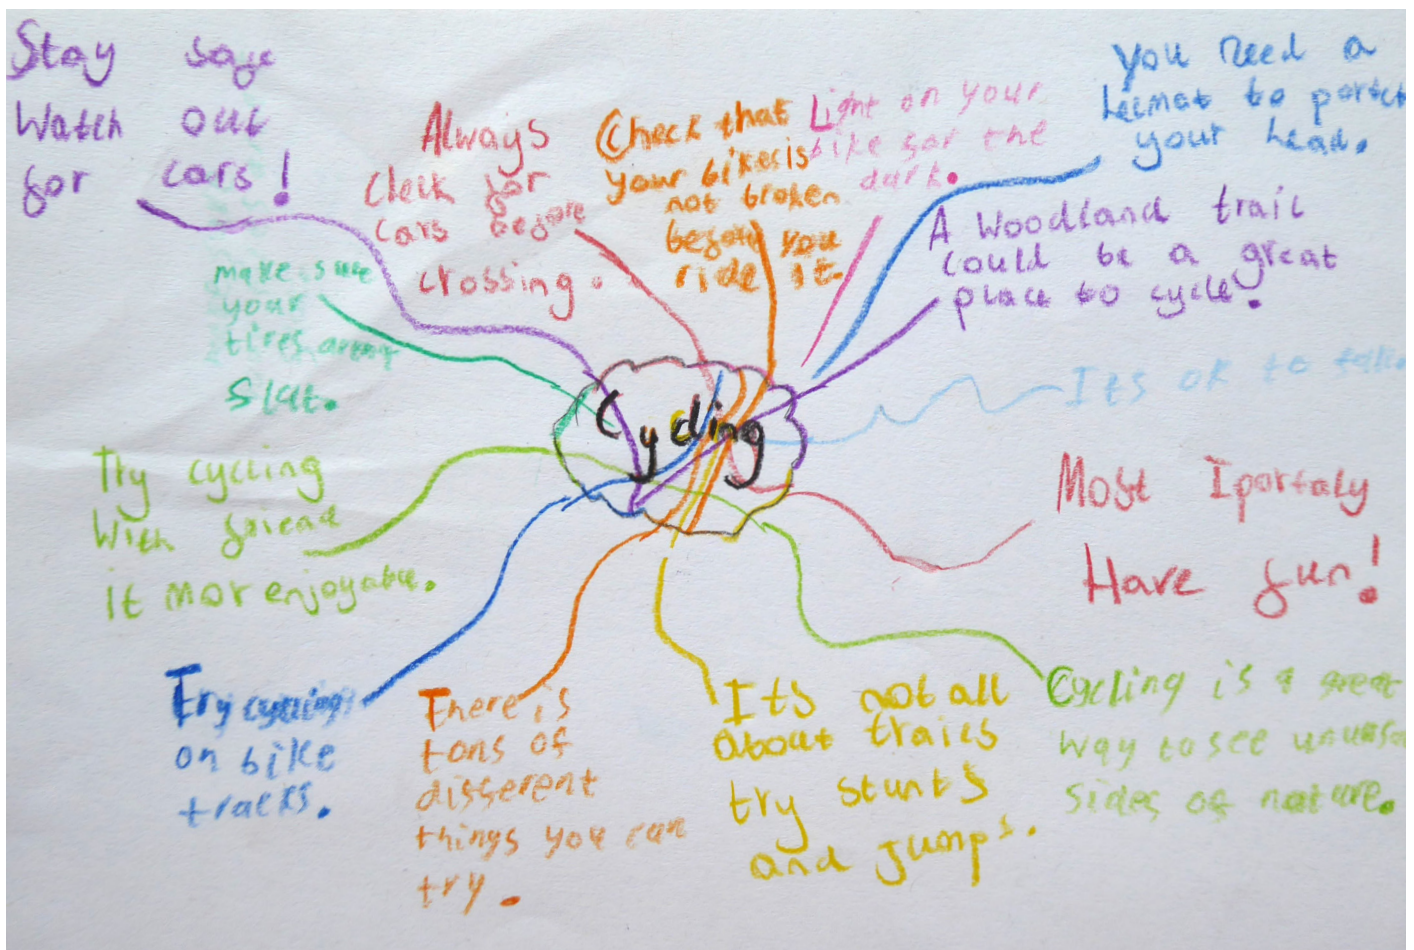 Stay safe
Watch out
for cars!
Always
Check for
cars before
crossing.
Check that
your bikes is
not broken
before you
ride it.
Light on your
bike for the
dark.
You need a
helmat to portct
your head.
A Woodland trail
could be a great
place to cycle.
make sure
your
tires arent
flat.
Cycling
Its ok to fall.
Try cycling
With friend
it mor enjoyable.
Most Iportaly
Have fun!
Try cycling
on bike
tracks.
There is
tons of
different
things you can
try.
Its not all
about trails
try stunts
and jumps.
Cycling is a great
way to see
sides of nature.